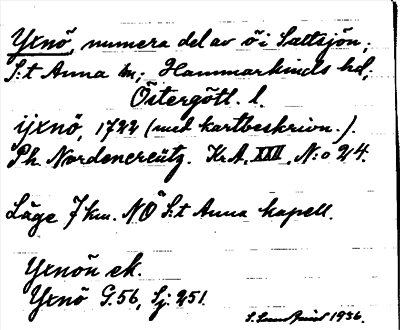 Yxnö, numera del av ö i Saltsjön,
S:t Anna sn; Hammarkinds hd,
Östergötl. l.
ijxnö, 1722 (med kartbeskrivn.).
Ph. Nordencreütz. Kr.A. XXII, N:o 24.
Läge 7 km. NÖ S:t Anna kapell.
Yxnön ek.
Yxnö G.56, Sj: 251.
1936.